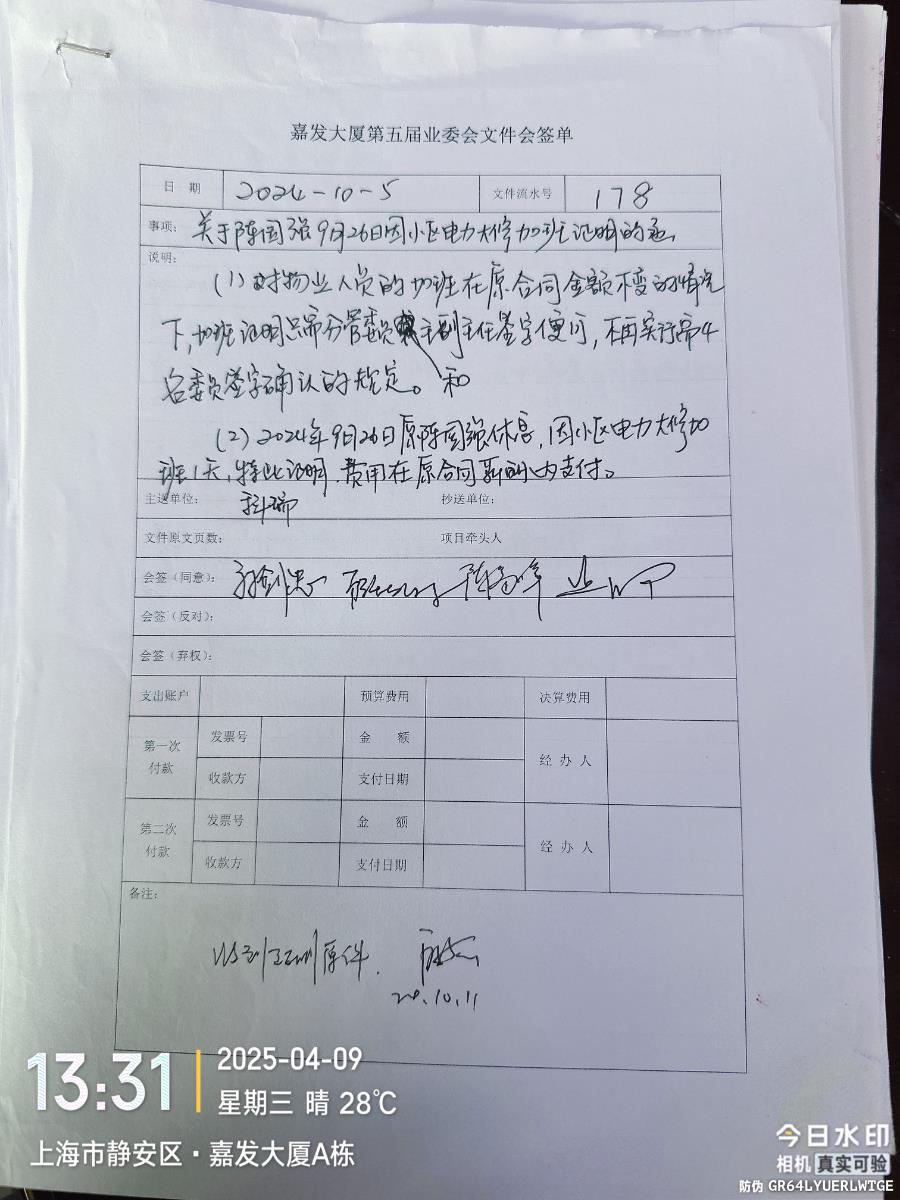 嘉发大厦第五届业委会文件会签单
日 期 2024-10-5 文件流水号 178
事项: 关于陈国强9月26日因小区电力大修加班证明的函
说明:
(1)对物业人员的加班在原合同金额不变的情况
下,加班证明只需分管委员和主副主任签字便可,不再实行需4
名委员签字确认的规定。
(2)2024年9月26日原陈国强休息,因小区电力大修加
班1天,特此证明,费用在原合同薪酬内支付。
主送单位: 科瑞 抄送单位:
文件原文页数: 项目牵头人
会签(同意):
会签(反对):
会签(弃权):
支出账户 预算费用 决算费用
第一次付款 发票号 金 额 经 办 人
收款方 支付日期
第二次付款 发票号 金 额 经 办 人
收款方 支付日期
备注:
收到 原件.
24.10.11
13:31 2025-04-09
星期三 晴 28℃
上海市静安区·嘉发大厦A栋
今日水印
相机 真实可验
防伪 GR64LYUERLWTGE